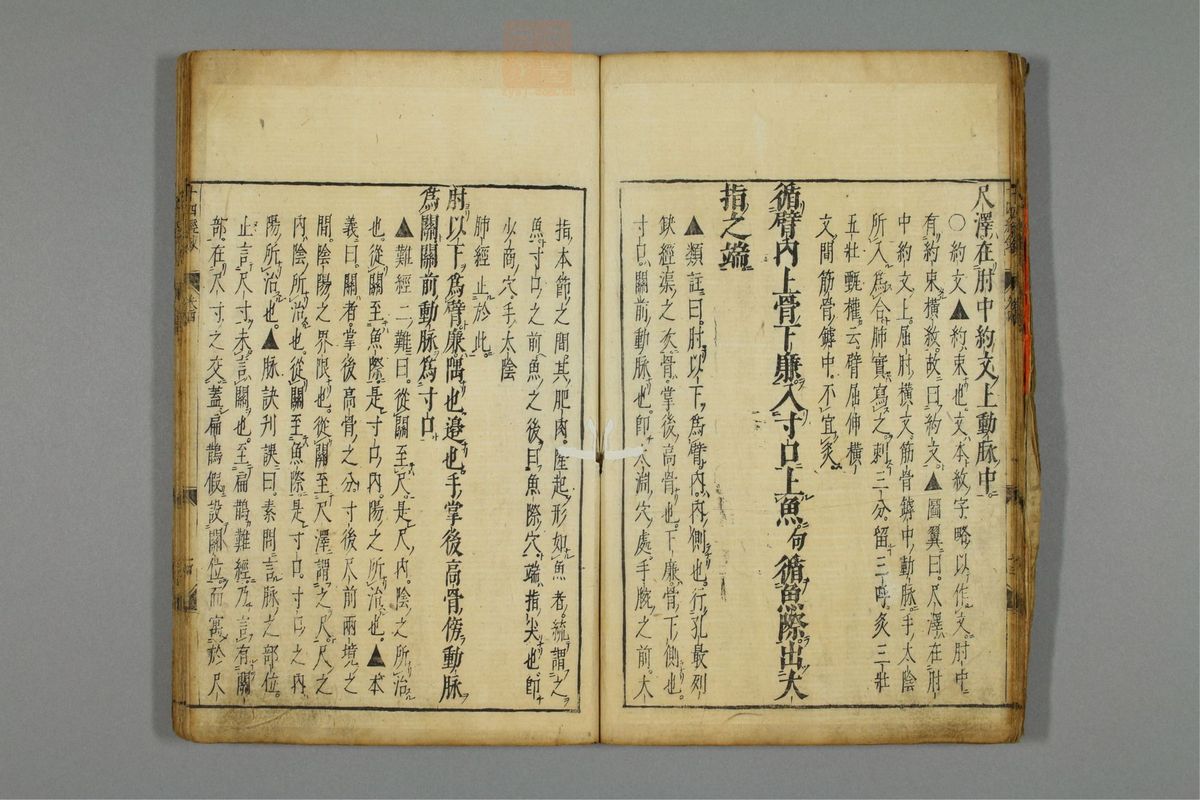 尺澤在肘中約文上動脉中
○約文▲約束也文本紋字略以作文肘中
有約束橫紋故曰約文▲圖翼曰尺澤在肘
中約文上屈肘橫文筋骨罅中動脉手太陰
所入爲合肺實寫之刺三分留三呼灸三壯
五壯甄權云臂屈伸橫
文間筋骨罅中不宜灸
循臂內上骨下廉入寸口上魚句循魚際出大
指之端
▲類註曰肘以下爲臂內內側也行孔最列
缺經渠之次骨掌後高骨也下廉骨下側也
寸口關前動脉也即太淵穴處手腕之前大
指本節之間其肥肉隆起形如魚者統謂之
魚寸口之前魚之後曰魚際穴端指尖也即
少商穴手太陰
肺經止於此
肘以下爲臂廉隅也邉也手掌後高骨傍動脉
爲關關前動脉爲寸口
▲難經二難曰從關至尺是尺內陰之所治
也從關至魚際是寸口內陽之所治也▲本
義曰關者掌後高骨之分寸後尺前兩境之
間陰陽之界限也從關至尺澤謂之尺尺之
內陰所治也從關至魚際是寸口寸口之內
陽所治也▲脉訣刊誤曰素問言脉之部位
止言尺寸未言關也至扁鵲難經乃言有關
部在尺寸之交蓋扁鵲假設關位而寓於尺